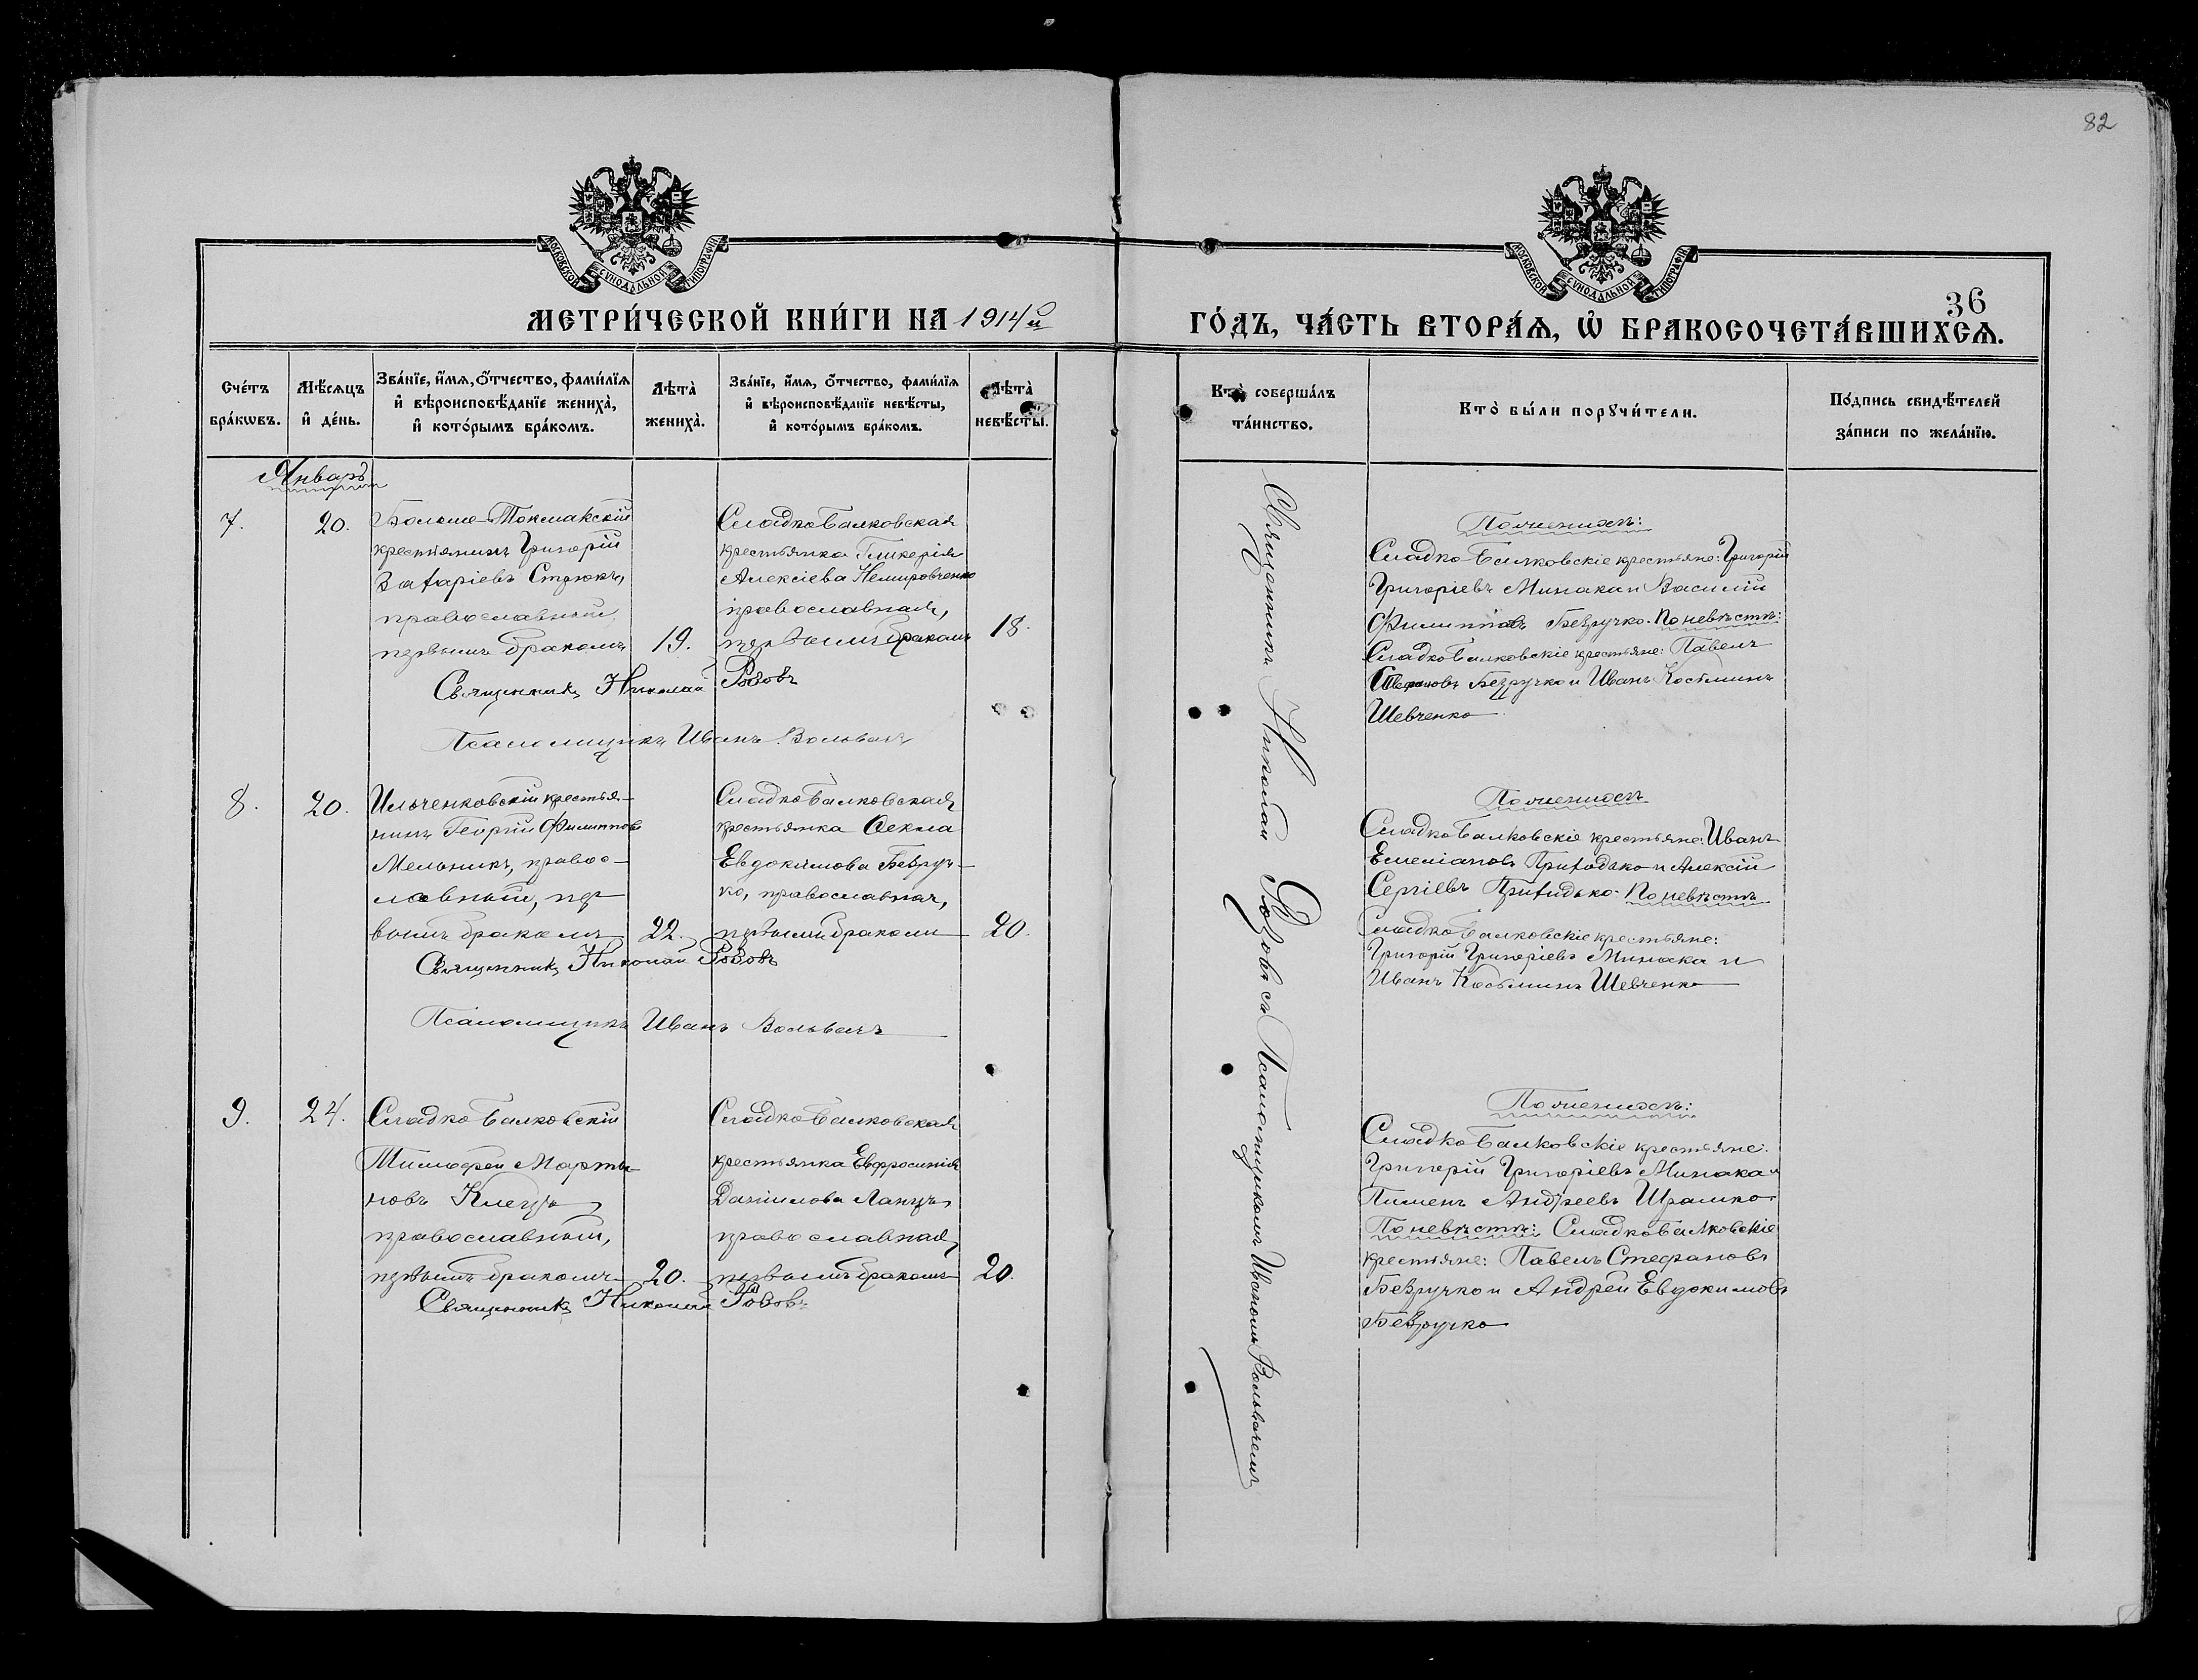 82
МОСКОВСКОЙ СѴНОДАЛЬНОЙ ТИПОГРАФІИ
МОСКОВСКОЙ СѴНОДАЛЬНОЙ ТИПОГРАФІИ
36
МЕТРИ́ЧЕСКОЙ КНИ́ГИ НА 1914й
ГО́ДЪ, ЧА́СТЬ ВТОРА́Ѧ, Ѡ҆ БРАКОСОЧЕТА́ВШИХСѦ.
Сче́тъ
бра́кѡвъ.
Мѣ́сяцъ
и҆ де́нь.
Зва́нїе, и҆́мѧ, ѻ҆́тчество, фами́лїѧ
и҆ вѣроисповѣ́данїе жениха̀,
и҆ кото́рымъ бра́комъ.
Лѣта̀
жениха̀.
Зва́нїе, и҆́мѧ, ѻ҆́тчество, фами́лїѧ
и҆ вѣроисповѣ́данїе невѣ́сты,
и҆ кото́рымъ бра́комъ.
Лѣта̀
невѣ́сты.
Кто̀ соверша́лъ
та́инство.
Кто̀ бы́ли порꙋчи́тели.
По́дпись свидѣ́телей
за́писи по жела́нїю.
Январь
7.
20.
Больше-Токмакскій
крестьянинъ Григорій
Захаріевъ Стрюкъ,
православный,
первымъ бракомъ
19.
Сладко Балковская
крестьянка Гликерія
Алексіева Немировченко
православная,
первымъ бракомъ
18.
Священникъ Николай Розовъ
Псаломщикъ Иванъ Вольвачъ
По женихѣ:
Сладко Балковскіе крестьяне: Григорій
Григоріевъ Минака и Василій
Филипповъ Безручко. По невѣстѣ:
Сладко Балковскіе крестьяне: Павелъ
Стефановъ Безручко и Иванъ Косьминъ
Шевченко
8.
20.
Ильченковскій крестья-
нинъ Георгій Филипповъ
Мельникъ, правос-
лавный, пер
вымъ бракомъ
22.
Сладко Балковская
крестьянка Ѳекла
Евдокимова Безруч-
ко, православная,
первымъ бракомъ
20.
Священникъ Николай Розовъ
Псаломщикъ Иванъ Вольвачъ
По женихѣ
Сладко Балковскіе крестьяне: Иванъ
Емеліановъ Приходько и Алексій
Сергіевъ Приходько. По невѣстѣ
Сладко Балковскіе крестьяне:
Григорій Григоріевъ Минака и
Иванъ Косьминъ Шевченко
9.
24.
Сладко Балковскій
Тимофей Марты-
новъ
православный,
первымъ бракомъ
20.
Сладко Балковская
крестьянка Евфросинія
Даніилова
православная,
первымъ бракомъ
20.
Священникъ Николай Розовъ
По женихѣ:
Сладко Балковскіе крестьяне:
Григорій Григоріевъ Минака и
Пименъ Андреевъ Шрамко.
По невѣстѣ: Сладко Балковскіе
крестьяне: Павелъ Стефановъ
Безручко и Андрей Евдокимовъ
Безручко
Священникъ Николай Розовъ съ Псаломщикомъ Иваномъ Вольвачемъ